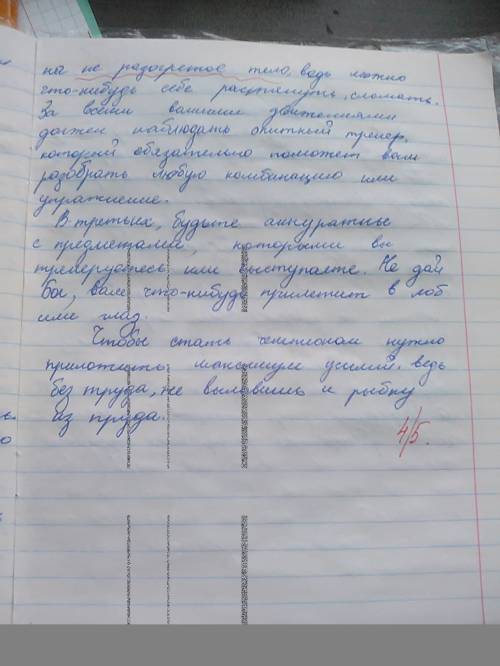 на не разогретое тело, ведь можно
что-нибудь себе растянуть, сломать.
За всеми вашими движениями
должен наблюдать опытный тренер,
который обязательно поможет вам
разобрать любую комбинацию или
упражнение.
В третьих, будьте аккуратные
с предметами, которыми вы
тренеруетесь или выступаете. Не дай
Бог, вам что-нибудь прилетит в лоб
или глаз.
Чтобы стать чемпионом нужно
приложить максимум усилий, ведь
без труда, не выловишь и рыбку
из пруда.
4/5.